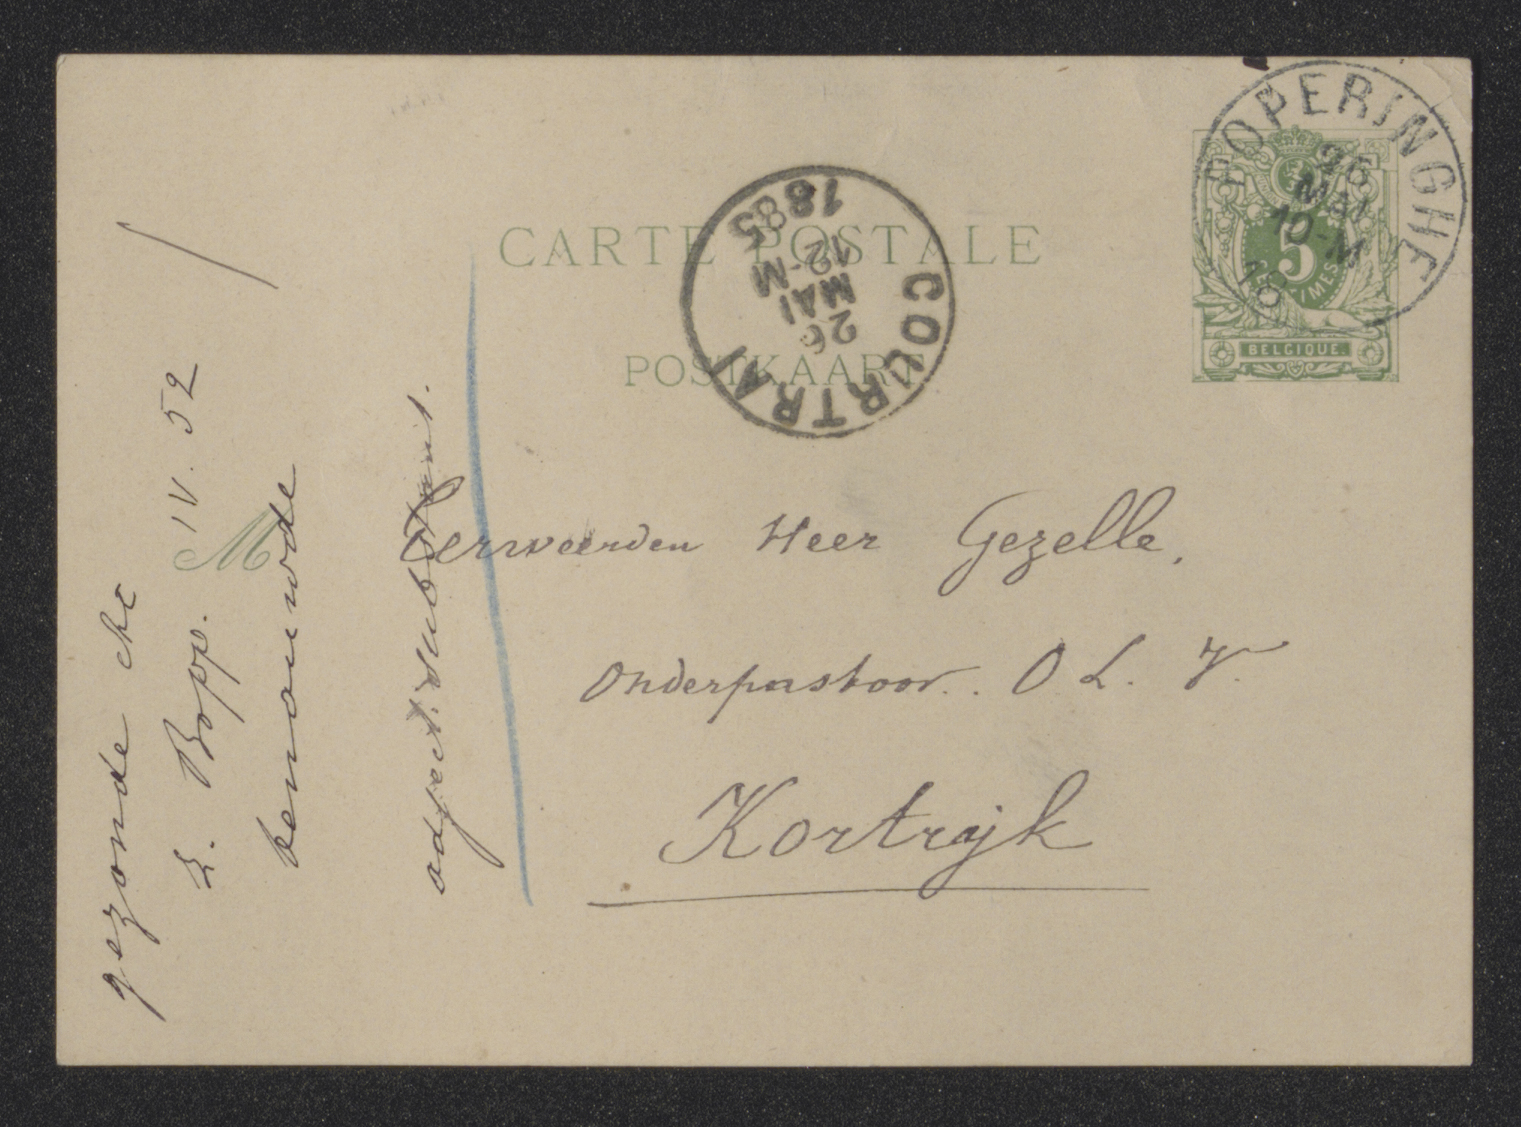 CARTE POSTALE
POSTKAART
POPERINGHE
26
MAI
10-M
18
5
CENTIMES
BELGIQUE.
COURTRAI
26
MAI
12-M
1885
M
Eerweerden Heer Gezelle,
Onderpastoor. O L. V.
Kortrijk
gezonde
L. Bopp. IV. 52
adject. substant.